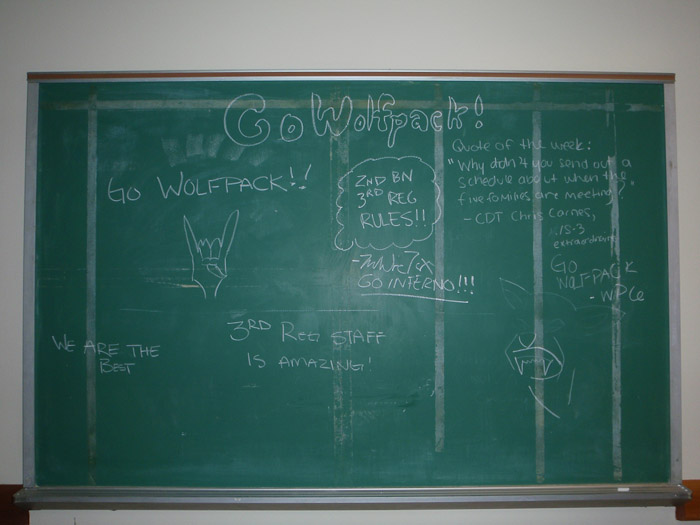 Go Wolfpack!
Quote of the week:
"Why didn't you send out a
schedule about when the
five families are meeting?"
- CDT Chris Carnes,
S-3
extraordinaire
GO WOLFPACK!!
2ND BN
3RD REG
RULES!!
GO INFERNO!!!
GO
WOLFPACK
- WP Co
3RD REG STAFF
IS AMAZING!
WE ARE THE
BEST